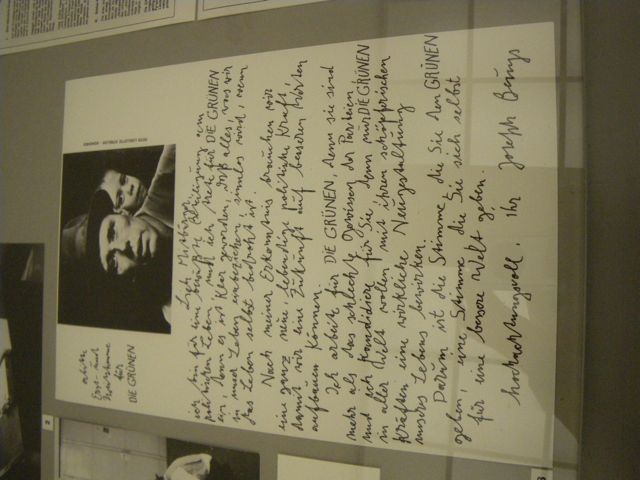 bitte
Erst- und
Zweitstimme
für
DIE GRÜNEN
Liebe Mitbürger,
ich bin für eine bewußte Beteiligung am
politischen Leben und ich trete für DIE GRÜNEN
ein, denn es ist klar geworden, daß alles, was wir
in unser Leben einbeziehen sinnlos wird, wenn
das Leben selbst bedroht ist.
Nach meiner Erkenntnis brauchen wir
eine ganz neue, lebendige, politische Kraft,
damit wir eine Zukunft auf besseren Werten
aufbauen können.
Ich arbeite für DIE GRÜNEN, denn sie sind
mehr als das schlechte Gewissen der Parteien,
und ich kandidiere für Sie, denn nur DIE GRÜNEN
in aller Welt wollen mit ihren schöpferischen
Kräften eine wirkliche Neugestaltung
unseres Lebens bewirken.
Darum ist die Stimme, die Sie den GRÜNEN
geben, eine Stimme, die Sie sich selbst
für eine bessere Welt geben.
hochachtungsvoll. Ihr Joseph Beuys